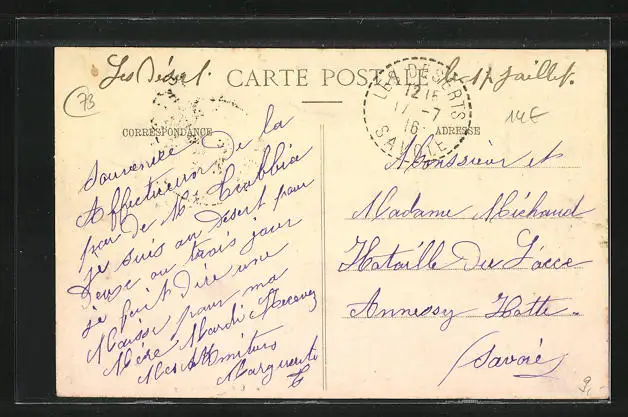 Les Désert. le 17 juillet.
CARTE POSTALE
73
LES DESERTS
12 15
17 -7
16
SAVOIE
14€
CORRESPONDANCE
ADRESSE
Souvenir
Affectueux De la
par de Me
je suis au Desert pour
deux ou trois jour
je fait dire une
Messe pour ma
Mère Mardi Recevez
Mes Amitiers
Marguerite
Monssieur et
Madame Michaud
Du
Annessy Hatte-
(Savoie)
9,